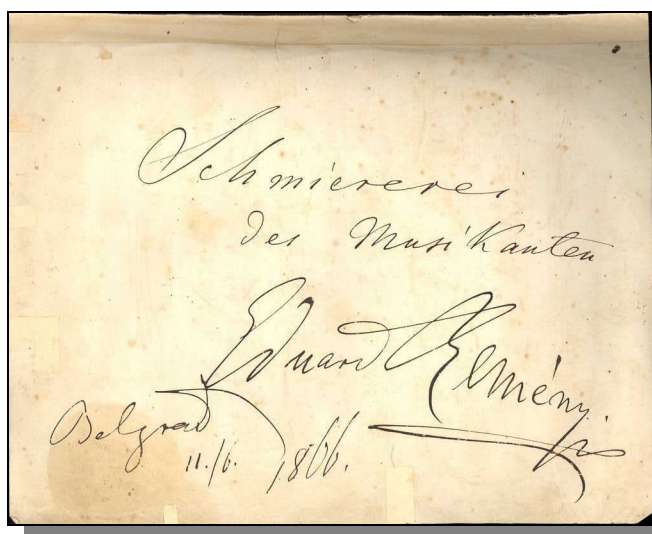 Schmiererei
des Musikanten
Eduard Reményi
Belgrad
11./6. 1866.